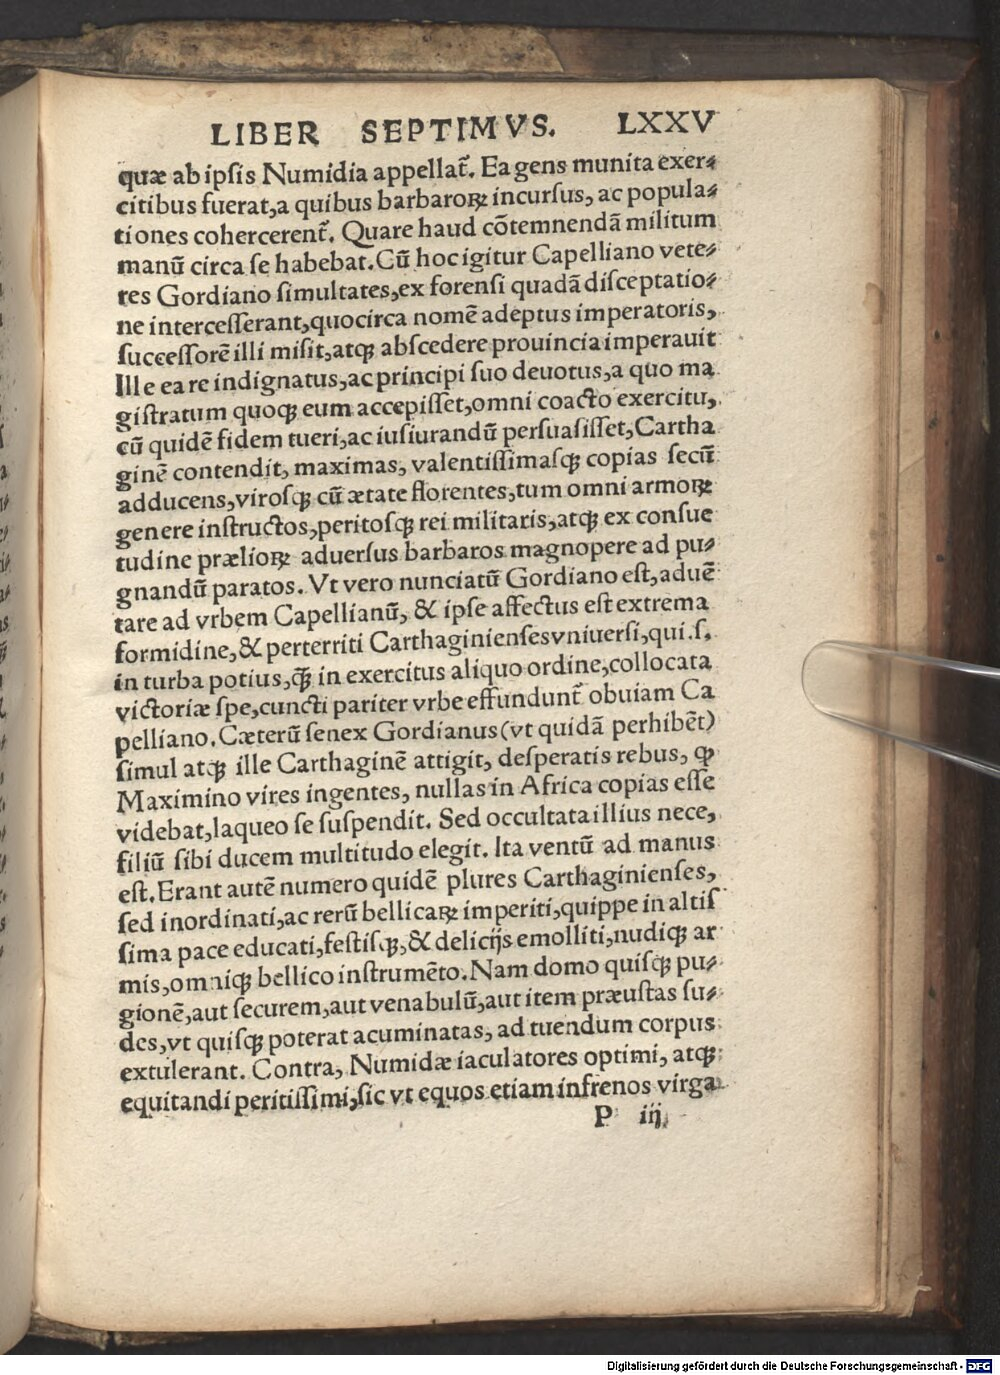 LIBER SEPTIMVS. LXXV
quæ ab ipſis Numidia appellat᷑. Ea gens munita exer⸗
citibus fuerat,a quibus barbaroꝝ incurſus, ac popula⸗
tiones cohercerent᷑. Quare haud cõtemnendã militum
manũ circa ſe habebat.Cũ hoc igitur Capelliano vete⸗
res Gordiano ſimultates,ex forenſi quadã diſceptatio⸗
ne interceſſerant,quocirca nomẽ adeptus imperatoris,
ſucceſſorẽ illi miſit,atqꝫ abſcedere prouincia imperauit
Ille ea re indignatus,ac principi ſuo deuotus,a quo ma
giſtratum quoqꝫ eum accepiſſet,omni coacto exercitu,
cũ quidẽ fidem tueri,ac iuſiurandũ perſuaſiſſet,Cartha
ginẽ contendit, maximas, valentiſſimaſqꝫ copias ſecũ
adducens,viroſqꝫ cũ ætate florentes,tum omni armoꝝ
genere inſtructos,peritoſqꝫ rei militaris,atqꝫ ex conſue
tudine prælioꝝ aduerſus barbaros magnopere ad pu⸗
gnandũ paratos. Vt vero nunciatũ Gordiano eſt,aduẽ
tare ad vrbem Capellianũ, & ipſe affectus eſt extrema
formidine,& perterriti Carthaginienſes vniuerſi,qui.ſ.
in turba potius,q̃ꝫ in exercitus aliquo ordine,collocata
victoriæ ſpe,cuncti pariter vrbe effundunt᷑ obuiam Ca
pelliano.Cæterũ ſenex Gordianus(vt quidã perhibẽt)
ſimul atqꝫ ille Carthaginẽ attigit, deſperatis rebus, ꝙ
Maximino vires ingentes, nullas in Africa copias eſſe
videbat,laqueo ſe ſuſpendit. Sed occultata illius nece,
filiũ ſibi ducem multitudo elegit. Ita ventũ ad manus
eſt.Erant autẽ numero quidẽ plures Carthaginienſes,
ſed inordinati,ac rerũ bellicaꝝ imperiti,quippe in altiſ
ſima pace educati,feſtiſqꝫ,& delicijs emolliti,nudiqꝫ ar
mis,omniqꝫ bellico inſtrumẽto.Nam domo quiſqꝫ pu⸗
gionẽ,aut ſecurem,aut venabulũ,aut item præuſtas ſu⸗
des,vt quiſqꝫ poterat acuminatas, ad tuendum corpus
extulerant. Contra, Numidæ iaculatores optimi, atqꝫ
equitandi peritiſſimi,ſic vt equos etiam infrenos virga
P iij
Digitalisierung gefördert durch die Deutsche Forschungsgemeinschaft - DFG